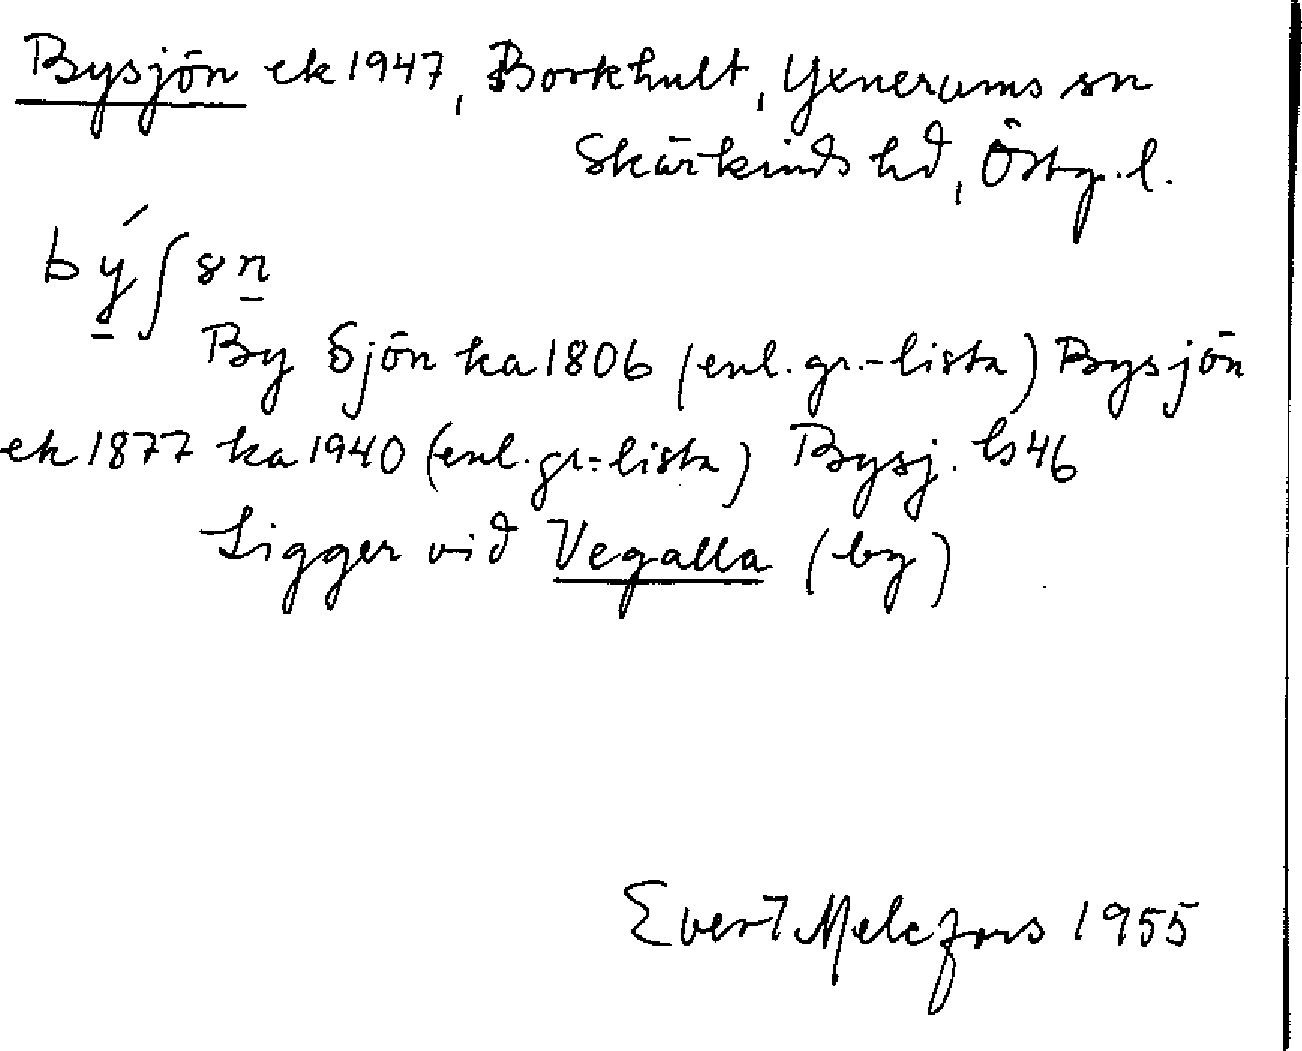 Bysjön ek 1947, Borkhult, Yxnerums sn
Skärkinds hd, Östg. l.
bý ʃ8n
By Sjön ka 1806 (enl. gr.-lista) Bysjön
ek 1877 ka 1940 (enl. gr.-lista) Bysj. ls 46
Ligger vid Vegalla (by)
Evert Melefors 1955